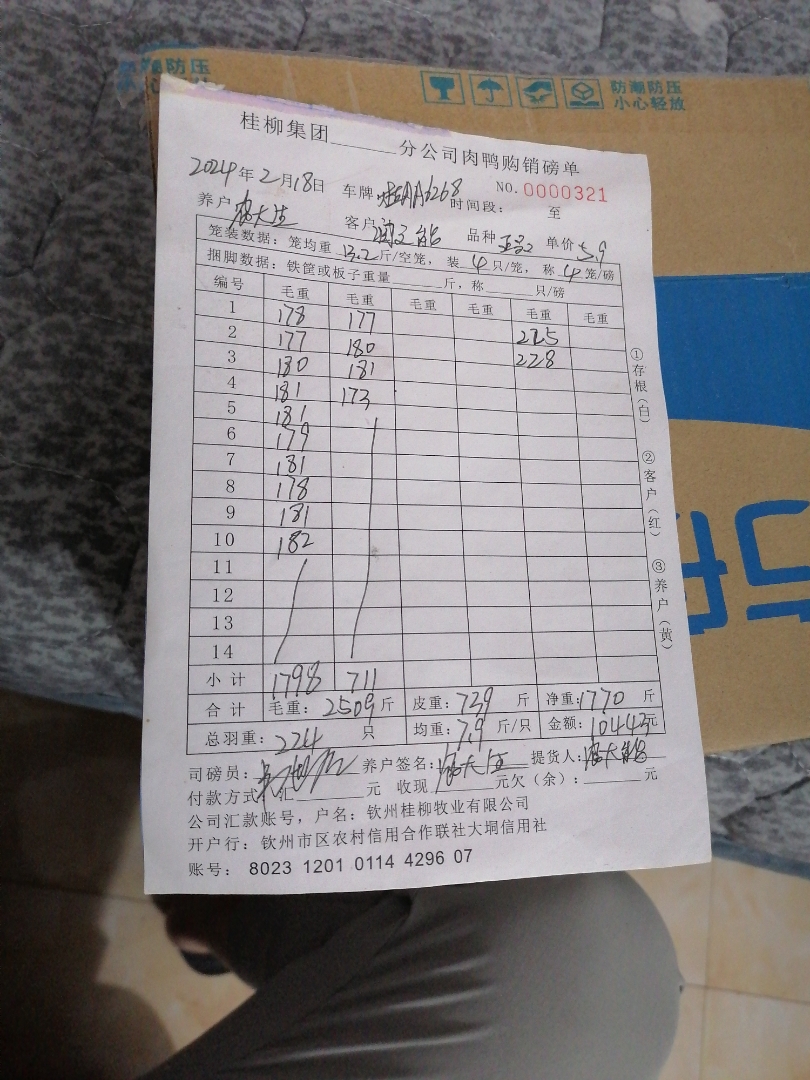 防潮防压
小心轻放
桂柳集团______分公司肉鸭购销磅单
2024年2月18日 车牌 桂AA6268 NO.0000321
时间段: 至
养户 客户 品种 单价5.9
笼装数据: 笼均重 13.2斤/空笼, 装 4只/笼, 称 4笼/磅
捆脚数据: 铁筐或板子重量______斤, 称______只/磅
编号 毛重 毛重 毛重 毛重 毛重 毛重
1 178 177 215
2 177 180 228
3 180 181
4 181 173
5 181
6 179
7 181
8 178
9 181
10 182
11
12
13
14
小计 1798 711
合计 毛重: 2509斤 皮重: 739斤 净重: 1770斤
总羽重: 224只 均重: 7.9斤/只 金额: 10443元
司磅员: 养户签名: 提货人:
付款方式: 汇______元 收现______元欠(余):______元
公司汇款账号, 户名: 钦州桂柳牧业有限公司
开户行: 钦州市区农村信用合作联社大垌信用社
账号: 8023 1201 0114 4296 07
①存根(白)
②客户(红)
③养户(黄)